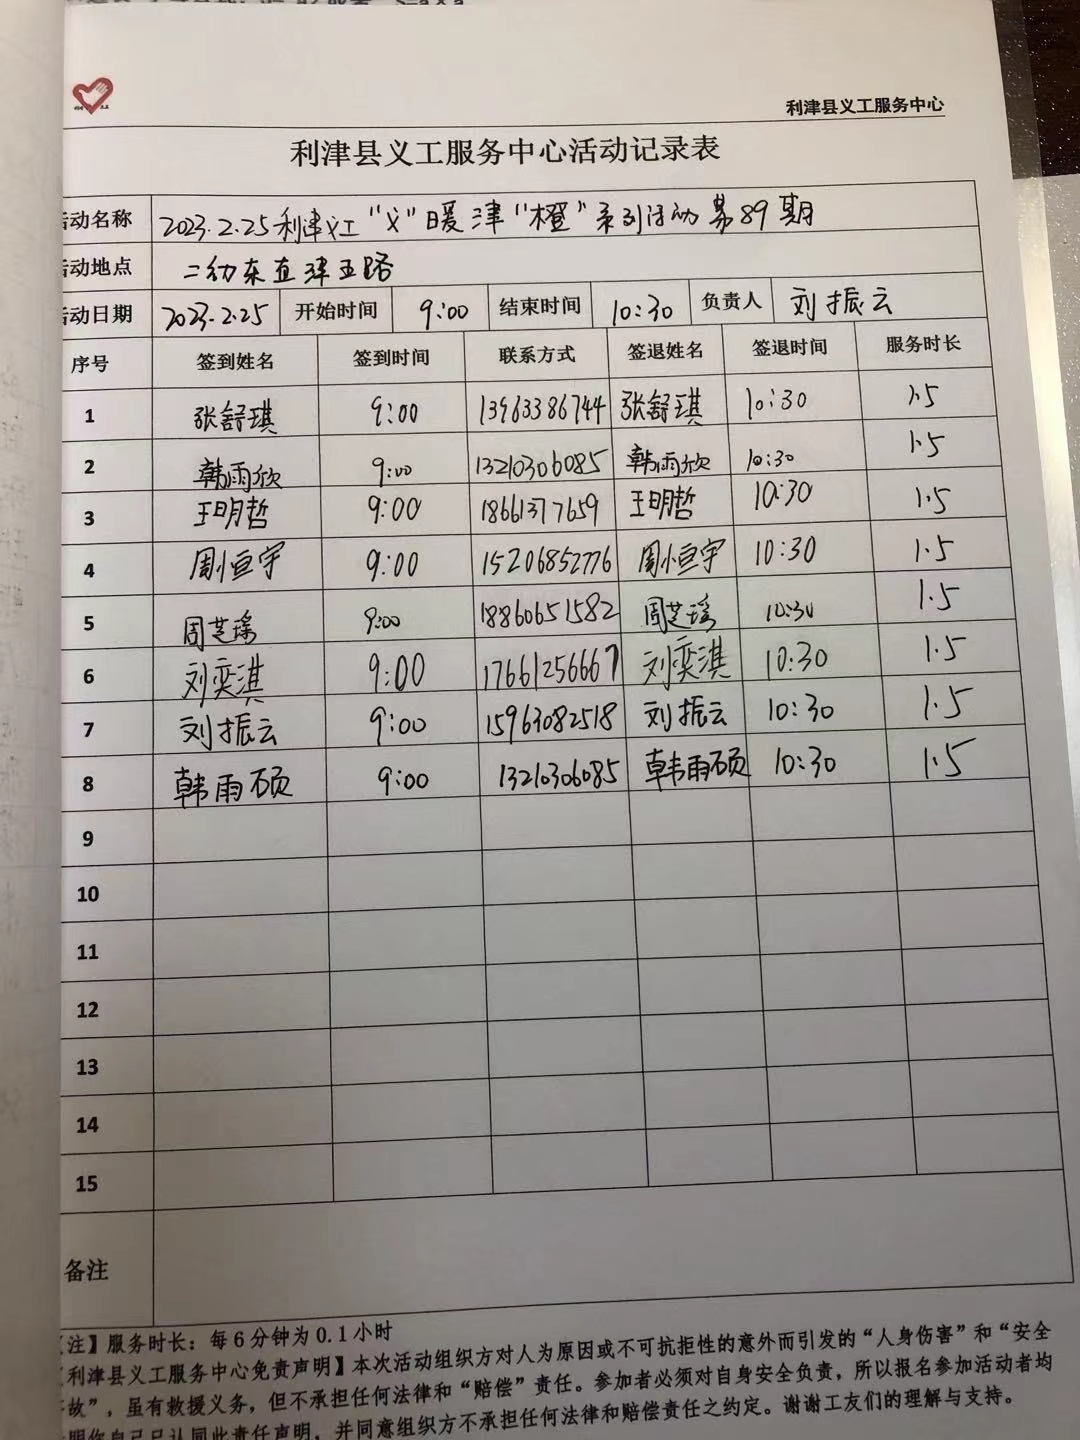 利津县义工服务中心
利津县义工服务中心活动记录表
活动名称 2023.2.25利津义工“义”暖津“橙”系列活动第89期
活动地点 二幼东直津五路
活动日期 2023.2.25 开始时间 9:00 结束时间 10:30 负责人 刘振云
序号 签到姓名 签到时间 联系方式 签退姓名 签退时间 服务时长
1 张舒琪 9:00 13963386744 张舒琪 10:30 1.5
2 韩雨欣 9:00 13210306085 韩雨欣 10:30 1.5
3 王明哲 9:00 18661377659 王明哲 10:30 1.5
4 周恒宇 9:00 15206852776 周恒宇 10:30 1.5
5 周芝瑶 9:00 18860651582 周芝瑶 10:30 1.5
6 刘奕淇 9:00 17661256667 刘奕淇 10:30 1.5
7 刘振云 9:00 15963082518 刘振云 10:30 1.5
8 韩雨硕 9:00 13210306085 韩雨硕 10:30 1.5
9
10
11
12
13
14
15
备注
【注】服务时长：每6分钟为0.1小时
【利津县义工服务中心免责声明】本次活动组织方对人为原因或不可抗拒性的意外而引发的“人身伤害”和“安全
事故”，虽有救援义务，但不承担任何法律和“赔偿”责任。参加者必须对自身安全负责，所以报名参加活动者均
明你自己已认同此责任声明，并同意组织方不承担任何法律和赔偿责任之约定。谢谢工友们的理解与支持。